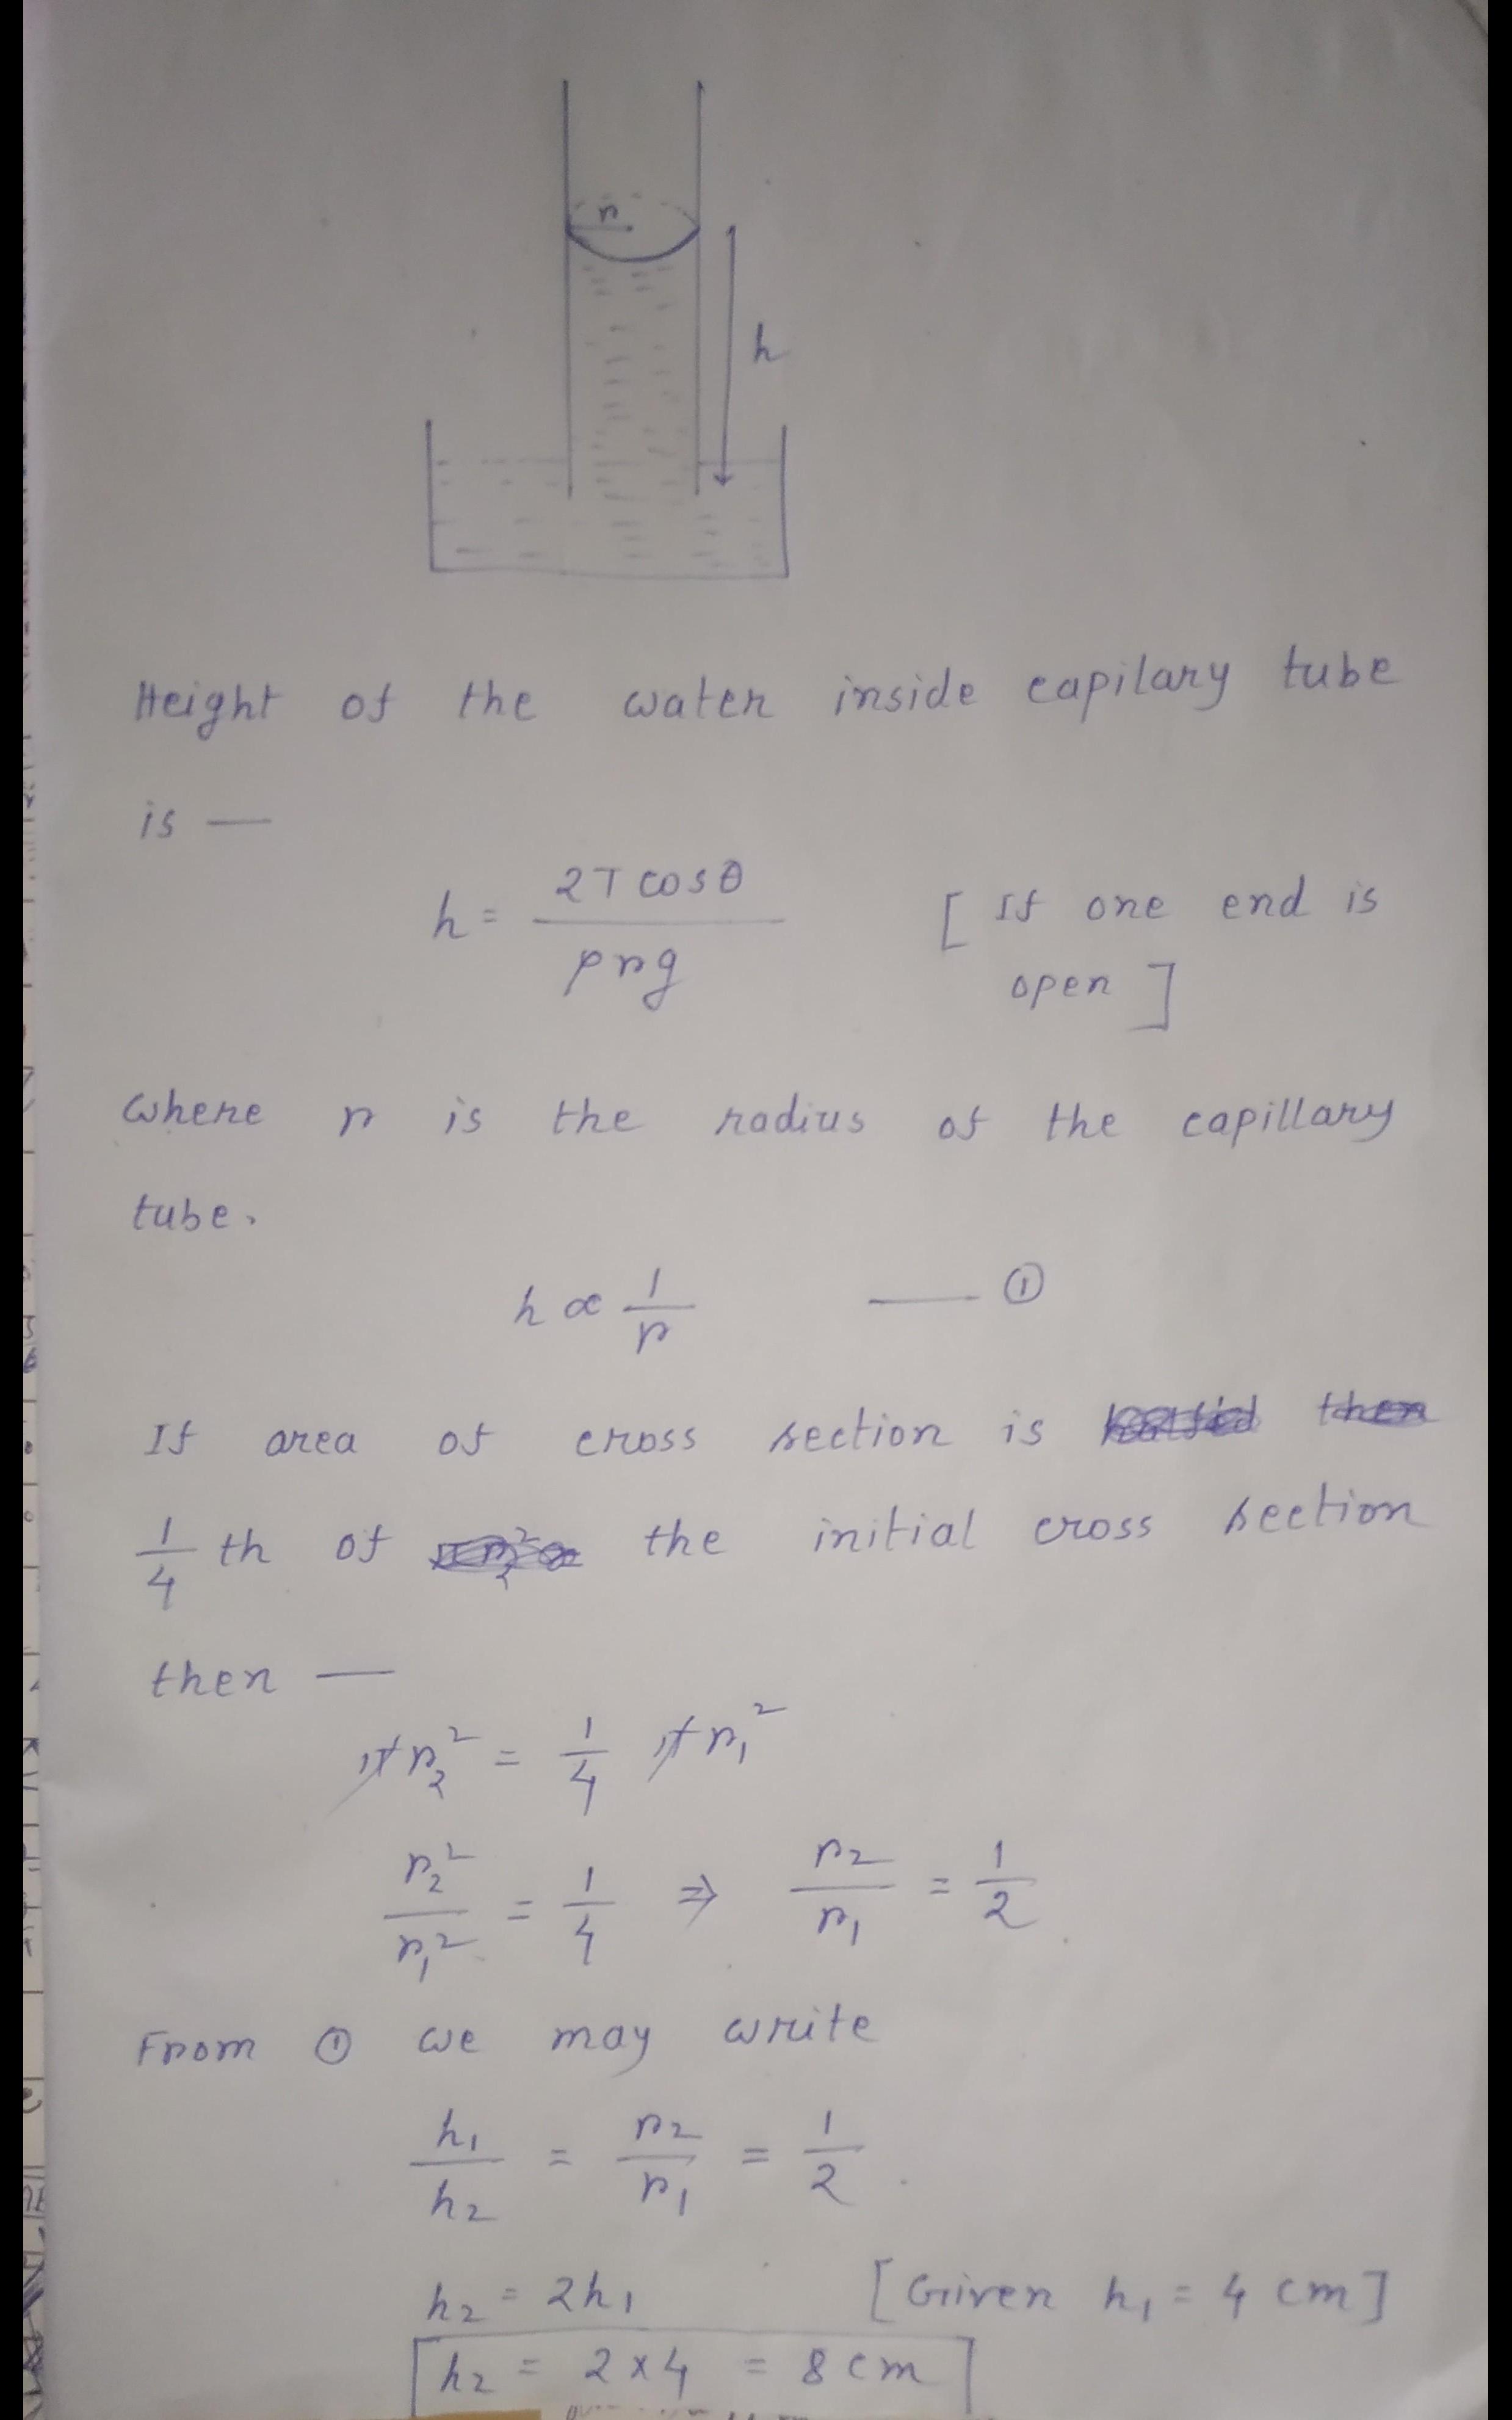 r
h
Height of the water inside capilary tube
is —
h = 2T cosθ / ρrg [ If one end is
open ]
where r is the radius of the capillary
tube.
h ∝ 1/r —— ①
If area of cross section is
1/4 th of the initial cross section
then —
πr₂² = 1/4 πr₁²
r₂²/r₁² = 1/4 ⇒ r₂/r₁ = 1/2
From ① we may write
h₁/h₂ = r₂/r₁ = 1/2
h₂ = 2h₁ [Given h₁ = 4 cm]
h₂ = 2 × 4 = 8 cm